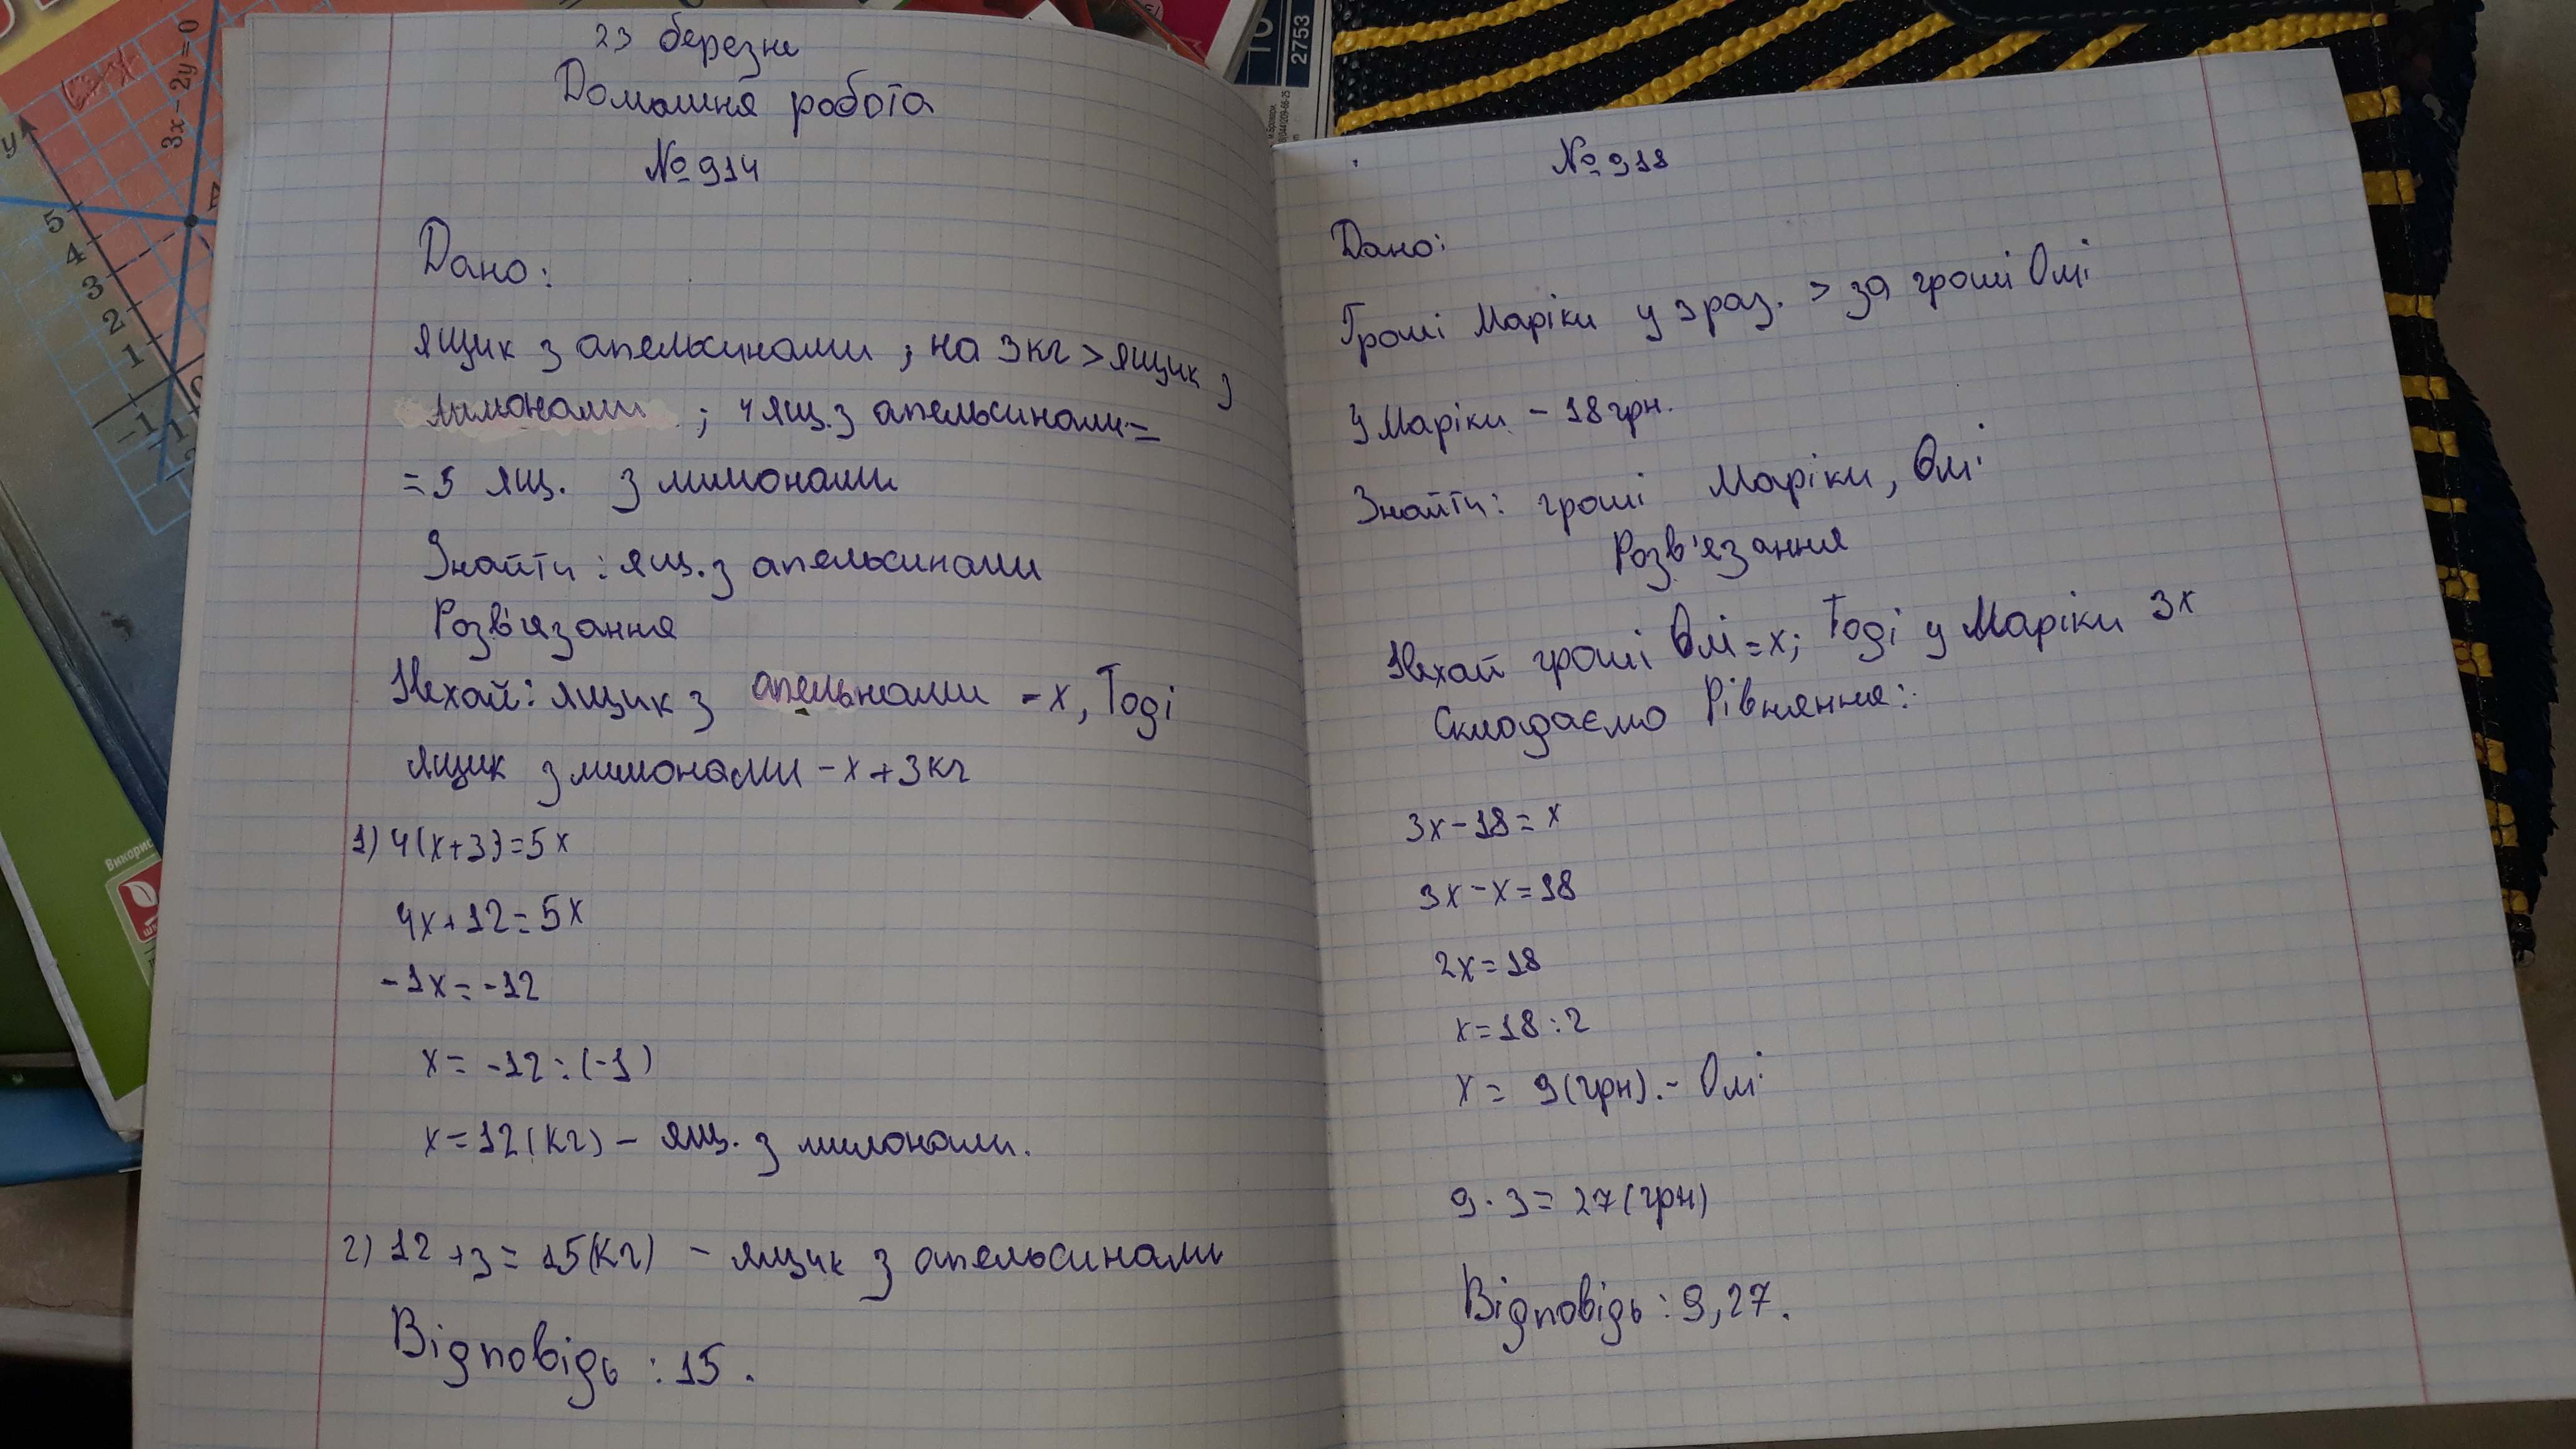 23 березня
Домашня робота
№ 914
Дано:
ящик з апельсинами ; на 3кг > ящик з
лимонами ; 4 ящ. з апельсинами =
= 5 ящ. з лимонами
Знайти : ящ. з апельсинами
Розв'язання
Нехай: ящик з апельнами - x, Тоді
ящик з лимонами - x + 3кг
1) 4(x+3)=5x
4x+12=5x
-1x=-12
x= -12:(-1)
x=12(кг) - ящ. з лимонами.
2) 12 +3= 15(кг) - ящик з апельсинами
Відповідь : 15.
№ 918
Дано:
Гроші Маріки у 3 раз. > за гроші Олі
У Маріки - 18 грн.
Знайти: гроші Маріки, Олі
Розв'язання
Нехай гроші Олі = x; Тоді у Маріки 3x
Складаємо Рівняння:
3x-18=x
3x-x=18
2x=18
x=18:2
x= 9(грн).- Олі
9·3= 27(грн)
Відповідь : 9,27.
3x - 2y = 0
y
5
4
3
2
1
0
-1
1
Викорис
2753